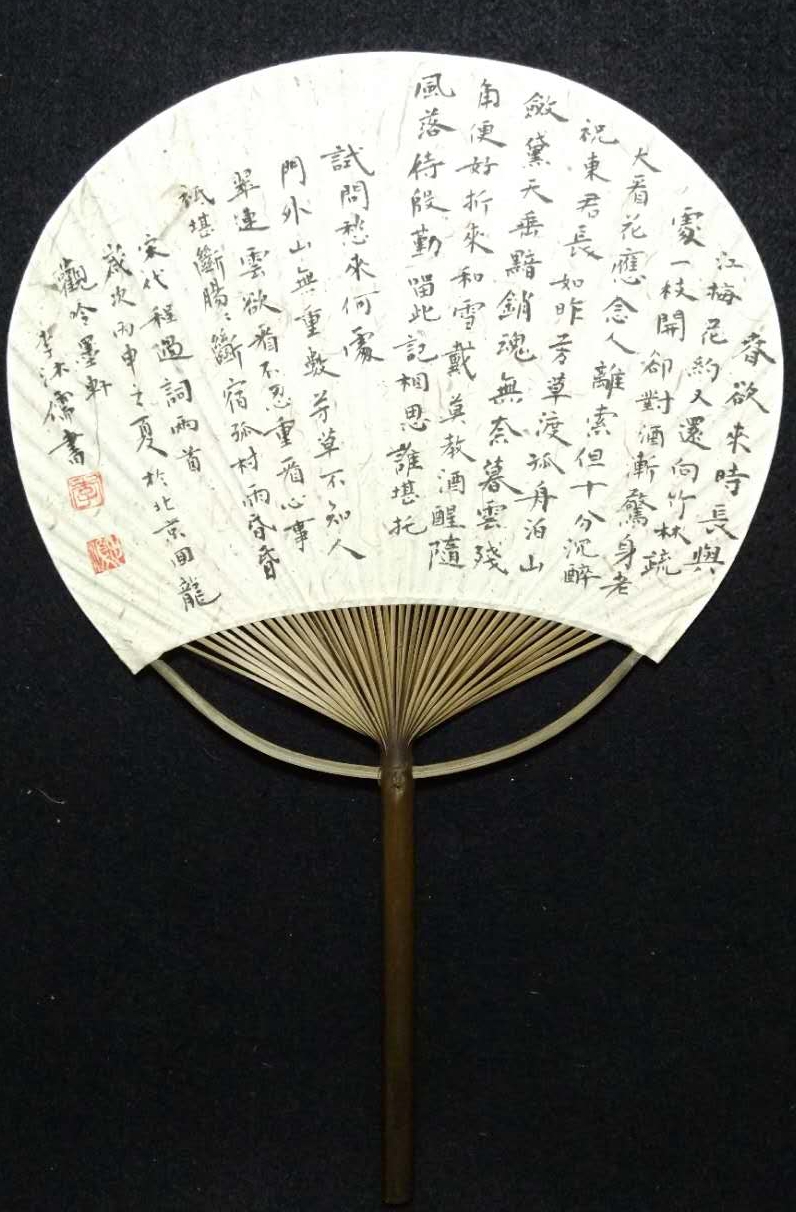 春欲来時長與
江梅花約又還向竹林疏
處一枝開卻對酒漸驚身老
大看花應念人離索但十分沉醉
祝東君長如昨芳草渡孤舟泊山
斂黛天垂黯銷魂無奈暮雲殘
角便好折來和雪戴莫教酒醒隨
風落待殷勤留此記相思誰堪托
試問愁來何處
門外山無重數芳草不知人
翠連雲欲看不忍重看心事
祇堪斷腸〻斷宿孤村雨昏昏
宋代程過詞兩首
歲次丙申之夏於北京回龍
觀吟墨軒
李沐儒書
李